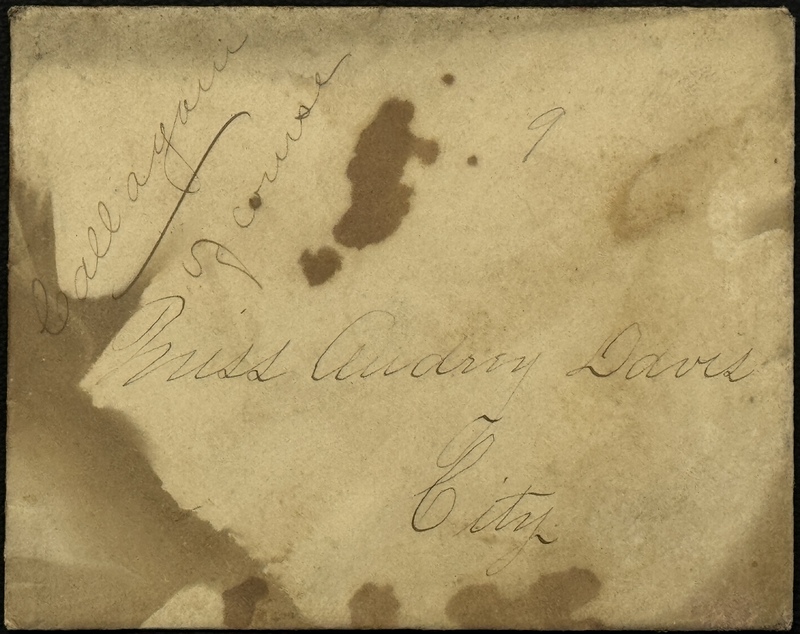 Call again
of course
9
Miss Audrey Davis
City